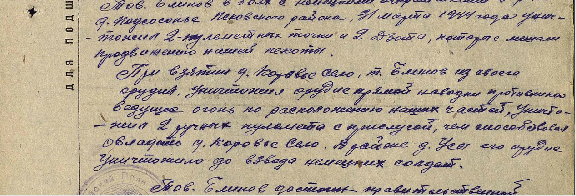 Тов. Блинов в боях с немецкими
д. Подсосонье Псковского района, 31 марта 1944 года унич-
тожил 2-пулеметные точки и 2 Дзота, которые мешали
продвижению нашей пехоты.
При взятии д. Коровье Село, т. Блинов из своего
орудия, уничтожил орудие прямой наводки противника
ведущее огонь по расположению наших частей, уничто-
-жил 2 ручных пулемета с прислугой, чем способствовал
овладеть д. Коровье Село. В районе д. Усы его орудие
уничтожило до взвода немецких солдат.
Тов. Блинов достоин правительственной
для подш